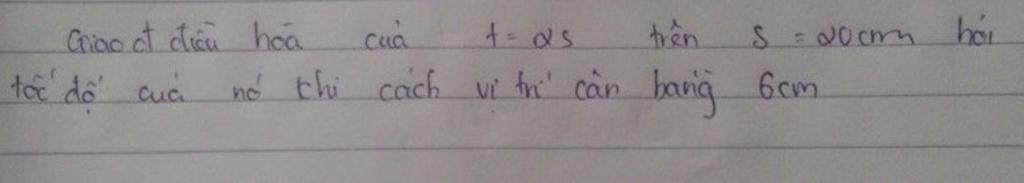 Giao đ điều hoà của t = 2s trên S = 20cm hỏi
tốc độ của nó khi cách vị trí cân bằng 6cm